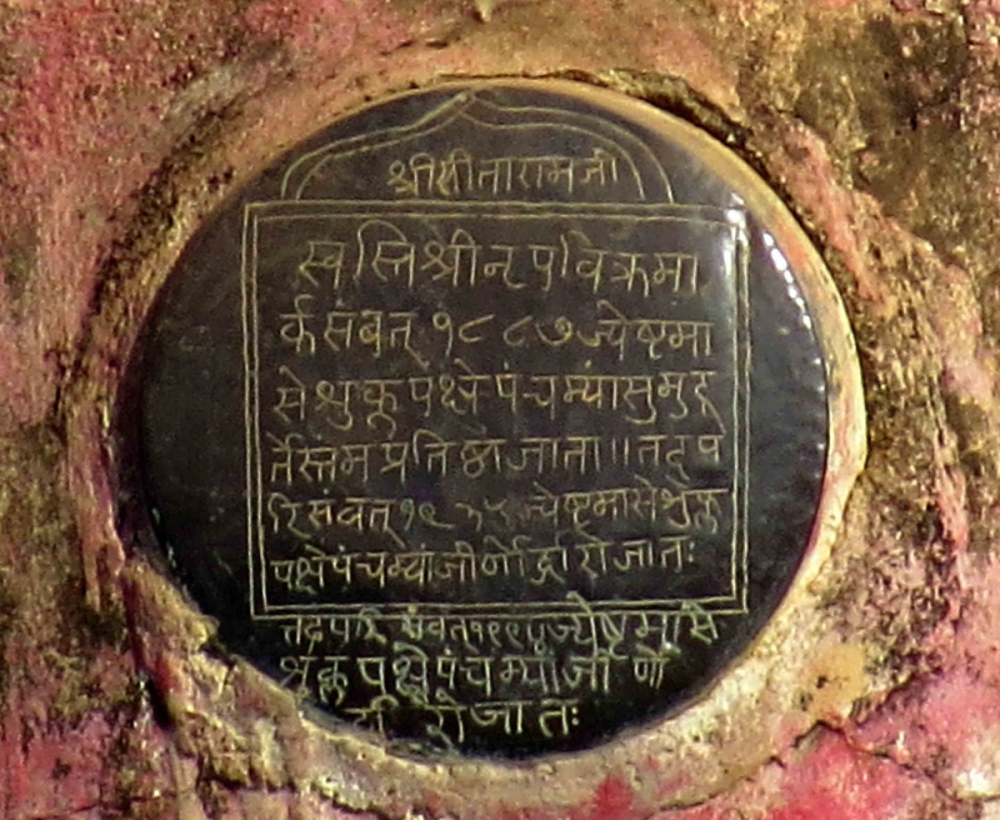 श्रीसीतारामजी
स्वस्तिश्रीनृपविक्रमा
र्कसंवत् १८८७ज्येष्टमा
सेश्रुक्लपक्षेपंचम्यांसुमुहू
र्तेस्तंमप्रतिष्ठाजाता॥तदुप
रिसंवत्१९३५ज्येष्टमासेश्रुक्ल
पक्षेपंचम्यांजीर्णोर्द्धारोजातः
तदुपरि संवत्१९९५ज्येष्टमासे
श्रुक्लपक्षेपंचम्यांजीर्णो
र्द्धारोजातः